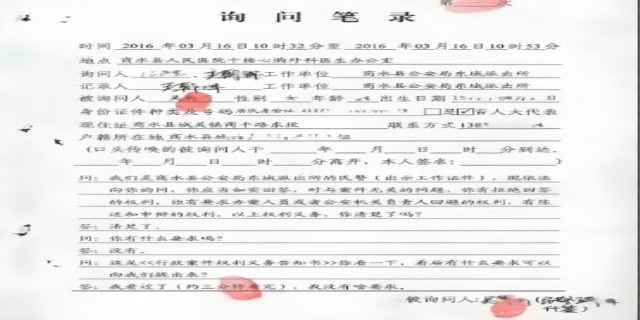 第 次
询问笔录
时间 2016 年 03 月 16 日 10 时 32 分至 2016 年 03 月 16 日 10 时 53 分
地点 商水县人民医院十楼心胸外科医生办公室
询问人 工作单位 商水县公安局东城派出所
记录人 工作单位 商水县公安局东城派出所
被询问人 性别 女 年龄 出生日期
身份证件种类及号码 □是☑否人大代表
现住址 商水县城关镇商平路东段 联系方式 138
户籍所在地 商水县
(口头传唤的被询问人于 年 月 日 时 分到达,
年 月 日 时 分离开,本人签名: )
问:我们是商水县公安局东城派出所的民警(出示工作证件),现依法
向你询问,你应当如实回答,对与案件无关的问题,你有拒绝回答
的权利,你有要求办案人员或者公安机关负责人回避的权利,有陈
述和申辩的权利,以上权利义务,你清楚了吗?
答:清楚了。
问:你有什么要求吗?
答:没有。
问:这是<<行政案件权利义务告知书>>你看一下,看后有什么要求可以
向我们提出来?
答:我看过了(约三分钟看完),我没有啥要求。
被询问人: